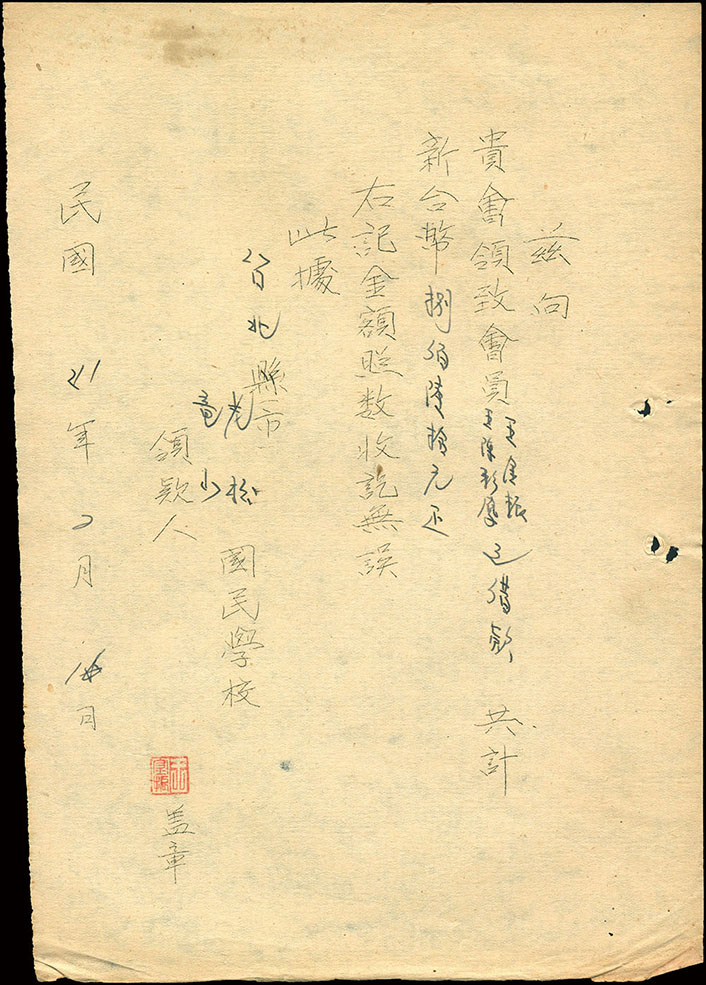 茲向
貴會領致會員王金振王陳彩鳳之借款 共計
新台幣捌佰陸拾元正
右記金額照数收訖無誤
此據
台北縣市 老松 龍山 國民學校
領款人 盖章
民國41年2月 日